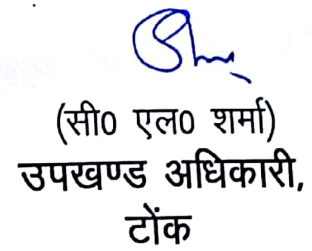 (सी0 एल0 शर्मा)
उपखण्ड अधिकारी,
टोंक